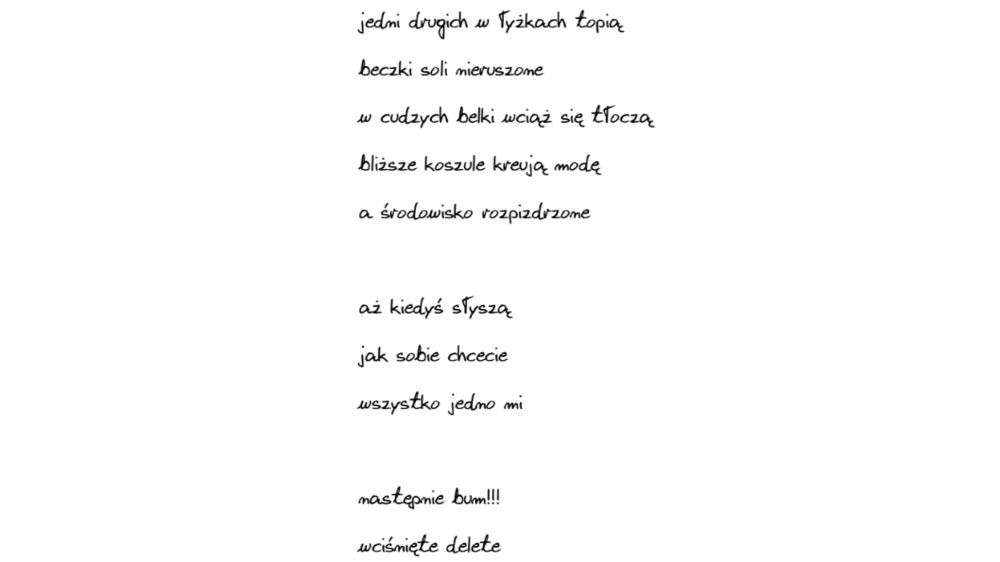 jedni drugich w łyżkach topią
beczki soli nieruszone
w cudzych belki wciąż się tłoczą
bliższe koszule kreują modę
a środowisko rozpizdrzone
aż kiedyś słyszą
jak sobie chcecie
wszystko jedno mi
następnie bum!!!
wciśnięte delete